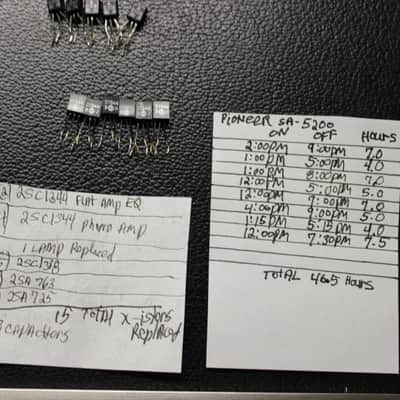 PIONEER SA-5200
ON OFF HOURS
2:00PM 9:00PM 7.0
1:00PM 5:00PM 4.0
1:00PM 8:00PM 7.0
12:00PM 5:00PM 5.0
12:00PM 7:00PM 7.0
4:00PM 9:00PM 5.0
1:15PM 5:15PM 4.0
12:00PM 7:30PM 7.5
TOTAL 46.5 HOURS
2SC1344 FLAT AMP EQ
2SC1344 PHONO AMP
1 LAMP Replaced
2SA763
2SA725
15 TOTAL X-istors
Replaced